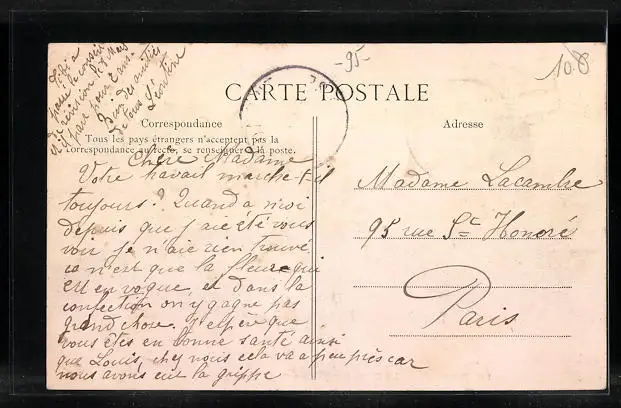 -95-
10.8
CARTE POSTALE
Correspondance
Adresse
Tous les pays étrangers n'acceptent pas la
correspondance au recto, se renseigner à la poste.
Chère Madame
Votre travail marche-t-il
toujours? Quand a moi
depuis que j'aie été vous
voir je n'aie rien trouvé
ce n'est que la fleur qui
est en vogue, et dans la
confection on y gagne pas
grand chose. J'espère que
vous êtes en bonne santé ainsi
que Louis, chez nous cela va a peu près car
nous avons eut la grippe
passé le conseil
de révision le Mars
Bien des amitiés
de tous Léontine
Madame Lacambre
95 rue St Honoré
Paris